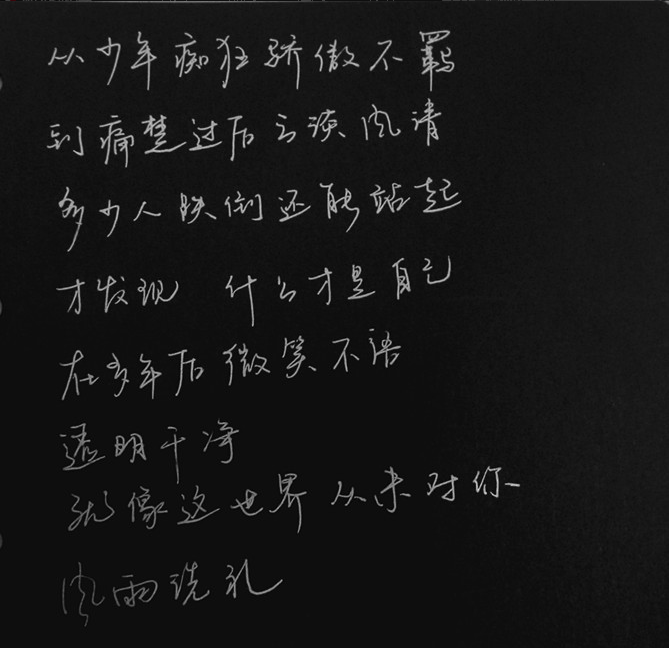 从少年痴狂骄傲不羁
到痛楚过后云淡风清
多少人跌倒还能站起
才发现 什么才是自己
在多年后微笑不语
透明干净
就像这世界从未对你
风雨洗礼